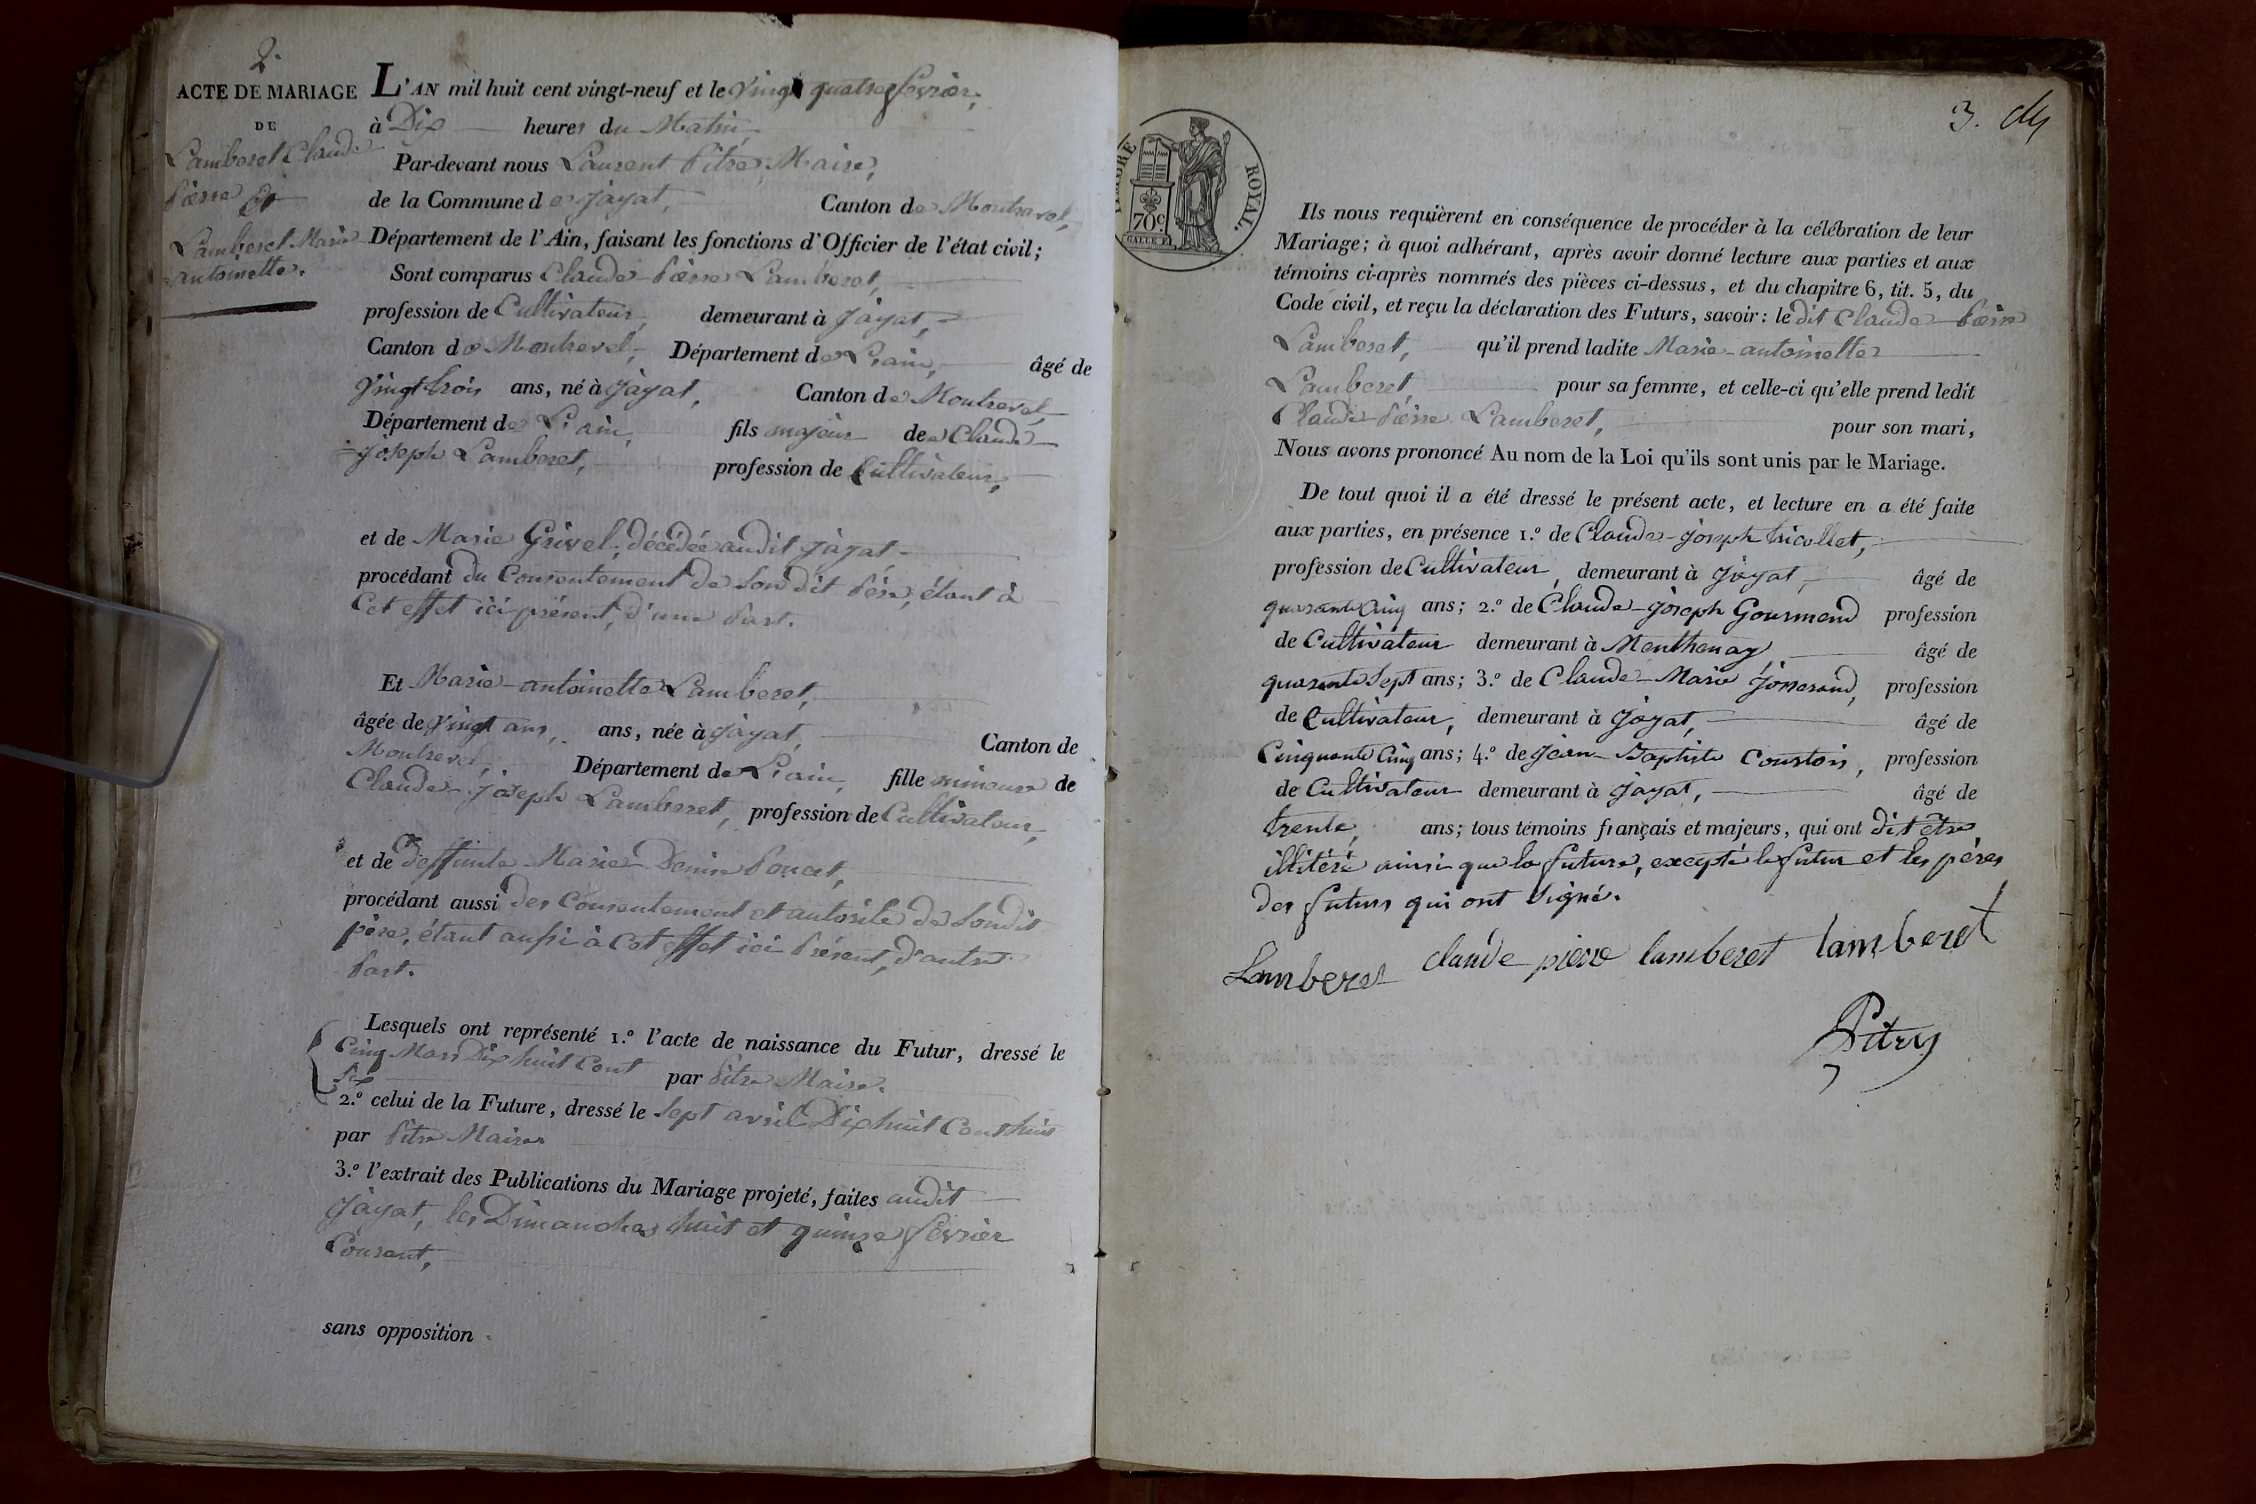 2.
ACTE DE MARIAGE
DE
Lamberet Claude
Pierre et
Lamberet Marie
antoinette.
L'AN mil huit cent vingt-neuf et le Vingt quatre fevrier,
à Dix heures du Matin,
Par-devant nous Laurent Pitre, Maire,
de la Commune de Jayat, Canton de Montrevel,
Département de l'Ain, faisant les fonctions d'Officier de l'état civil;
Sont comparus Claude Pierre Lamberet,
profession de Cultivateur, demeurant à Jayat,
Canton de Montrevel, Département de L'ain, âgé de
Vingt trois ans, né à Jayat, Canton de Montrevel,
Département de L'ain, fils majeur de Claude
Joseph Lamberet, profession de Cultivateur,
et de Marie Grivel, décédée audit Jayat
procédant du Consentement de Son dit Père, étant à
Cet effet ici présent, d'une Part.
Et Marie-antoinette Lamberet,
âgée de Vingt ans, ans, née à Jayat, Canton de
Montrevel, Département de L'ain, fille mineure de
Claude-Joseph Lamberet, profession de Cultivateur,
et de deffunte Marie Denise Poncet,
procédant aussi des Consentement et autorité de Son dit
père, étant aussi à Cet effet ici Présent, d'autre
Part.
Lesquels ont représenté 1.º l'acte de naissance du Futur, dressé le
Cinq Mars Dix huit Cent
Six par Pitre Maire.
2.º celui de la Future, dressé le Sept avril Dix huit Cent huit
par Pitre Maire
3.º l'extrait des Publications du Mariage projeté, faites audit
Jayat, les Dimanches huit et quinze fevrier
Courant,
sans opposition
3.
TIMBRE ROYAL.
70c.
Ils nous requièrent en conséquence de procéder à la célébration de leur
Mariage; à quoi adhérant, après avoir donné lecture aux parties et aux
témoins ci-après nommés des pièces ci-dessus, et du chapitre 6, tit. 5, du
Code civil, et reçu la déclaration des Futurs, savoir: le dit Claude Pierre
Lamberet, qu'il prend ladite Marie-antoinette
Lamberet, pour sa femme, et celle-ci qu'elle prend ledit
Claude Pierre Lamberet, pour son mari,
Nous avons prononcé Au nom de la Loi qu'ils sont unis par le Mariage.
De tout quoi il a été dressé le présent acte, et lecture en a été faite
aux parties, en présence 1.º de Claude-Joseph tricollet,
profession de Cultivateur, demeurant à Jayat, âgé de
quarante Cinq ans; 2.º de Claude-Joseph Gourmand profession
de Cultivateur demeurant à Manthenay âgé de
quarante Sept ans; 3.º de Claude-Marie Josserand, profession
de Cultivateur, demeurant à Jayat, âgé de
Cinquante Cinq ans; 4.º de Jean-Baptiste Courtois, profession
de Cultivateur demeurant à Jayat, âgé de
trente, ans; tous témoins français et majeurs, qui ont dit être
illitéré ainsi que la future, excepté le futur et les péres
des futurs qui ont Signé.
Lamberet claude pierre lamberet lamberet
Pitre